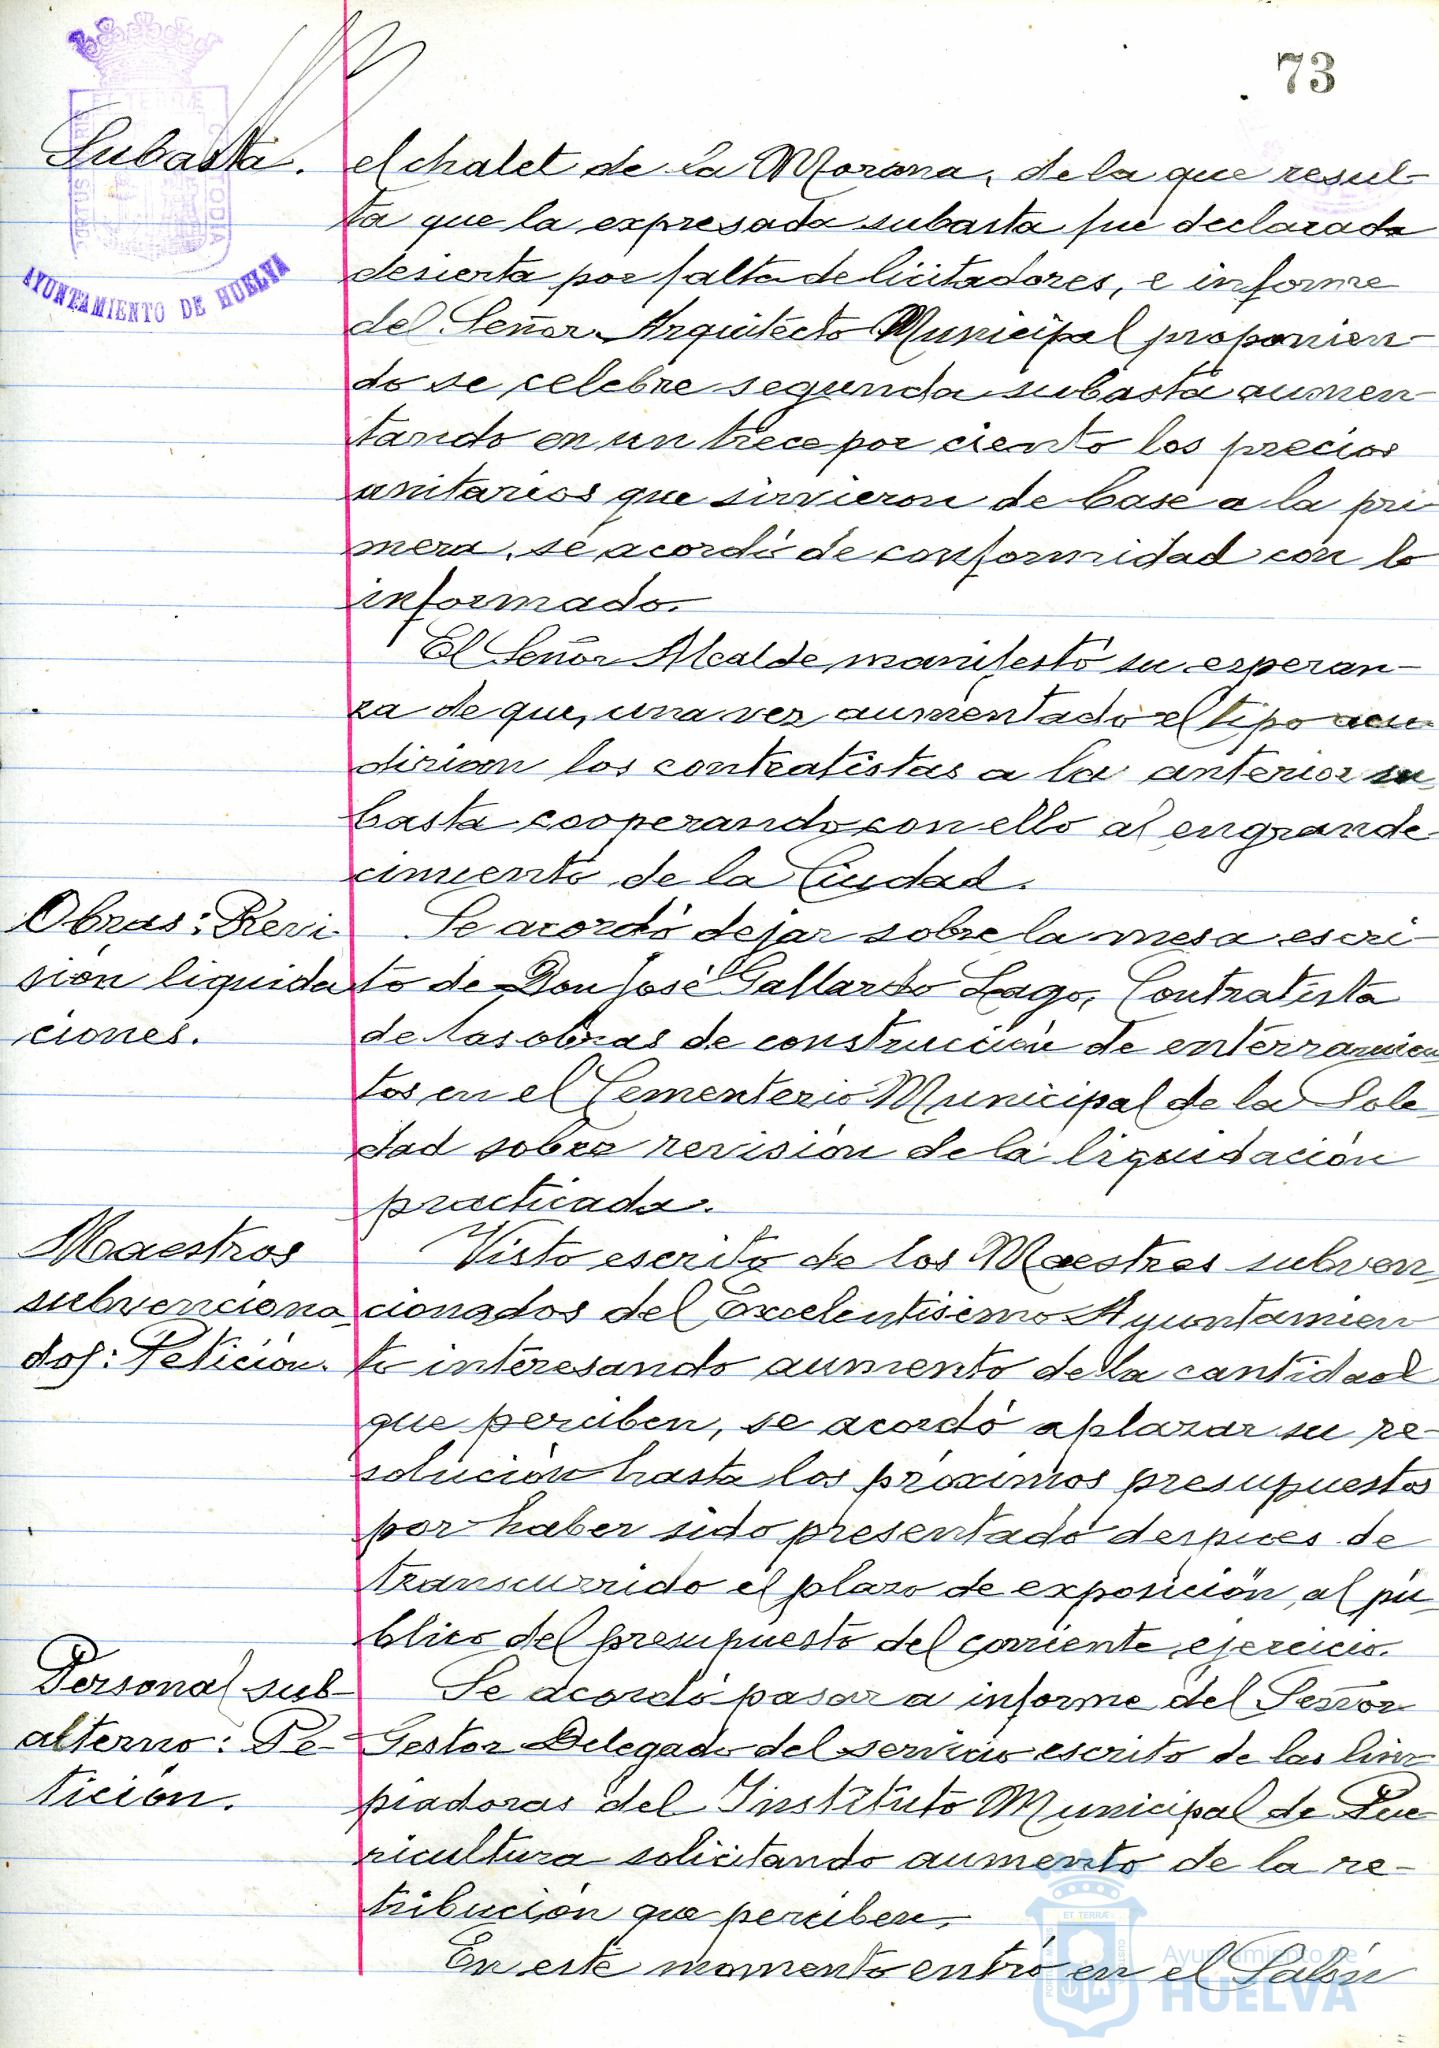 73
Subasta.
el chalet de la Morana, de la que resul-
ta que la expresada subasta fué declarada
desierta por falta de licitadores, e informe
del Señor Arquitecto Municipal proponien-
do se celebre segunda subasta aumen-
tando en un trece por ciento los precios
unitarios que sirvieron de base a la pri
mera, se acordó de conformidad con lo
informado.
El Señor Alcalde manifestó su esperan-
za de que, una vez aumentado el tipo acu-
dirían los contratistas a la anterior su-
basta cooperando con ello al engrande-
cimiento de la Ciudad.
Obras: Revi-
sión liquida
ciones.
Se acordó dejar sobre la mesa escri-
to de Don José Gallardo Lago, Contratista
de las obras de construcción de enterramien
tos en el Cementerio Municipal de la Sole-
dad sobre revisión de la liquidación
practicada.
Maestros
subvenciona-
dos: Petición.
Visto escrito de los Maestros subven-
cionados del Excelentísimo Ayuntamien
to interesando aumento de la cantidad
que perciben, se acordó aplazar su re-
solución hasta los próximos presupuestos
por haber sido presentado despues de
transcurrido el plazo de exposición al pú-
blico del presupuesto del corriente ejercicio.
Personal sub-
alterno: Pe-
tición.
Se acordó pasar a informe del Señor
Gestor Delegado del servicio escrito de las lim-
piadoras del Instituto Municipal de Pue
ricultura solicitando aumento de la re-
tribución que perciben.
En este momento entró en el Salón
AYUNTAMIENTO DE HUELVA
Ayuntamiento de
HUELVA